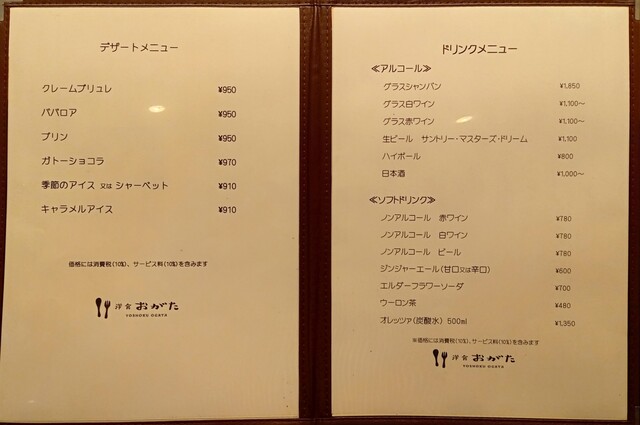 デザートメニュー
クレームブリュレ ¥950
ババロア ¥950
プリン ¥950
ガトーショコラ ¥970
季節のアイス 又は シャーベット ¥910
キャラメルアイス ¥910
価格には消費税(10%)、サービス料(10%)を含みます
洋食 おがた
YOSHOKU OGATA
ドリンクメニュー
≪アルコール≫
グラスシャンパン ¥1,850
グラス白ワイン ¥1,100～
グラス赤ワイン ¥1,100～
生ビール サントリー・マスターズ・ドリーム ¥1,100
ハイボール ¥800
日本酒 ¥1,000～
≪ソフトドリンク≫
ノンアルコール 赤ワイン ¥780
ノンアルコール 白ワイン ¥780
ノンアルコール ビール ¥780
ジンジャーエール(甘口又は辛口) ¥600
エルダーフラワーソーダ ¥700
ウーロン茶 ¥480
オレッツァ(炭酸水) 500ml ¥1,350
※価格には消費税(10%)、サービス料(10%)を含みます
洋食 おがた
YOSHOKU OGATA